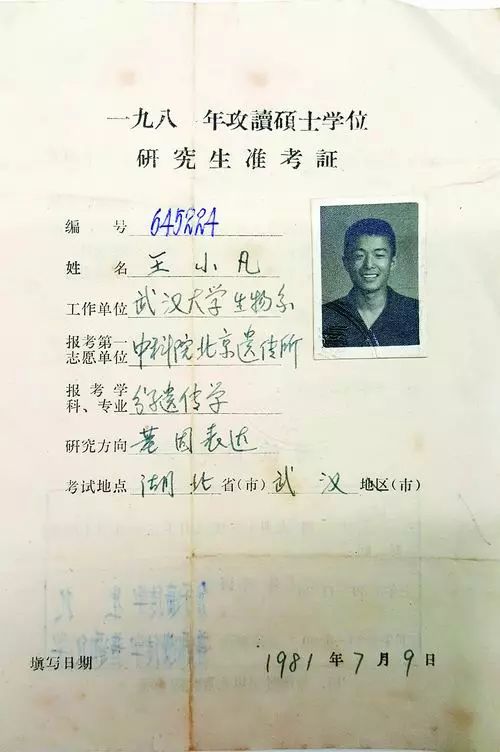 一九八 年攻讀碩士学位
研究生准考証
编号 645224
姓名 王小凡
工作单位 武汉大学生物系
报考第一志愿单位 中科院北京遗传所
报考学科、专业 分子遗传学
研究方向 基因表达
考试地点 湖北省(市)武汉地区(市)
填写日期 1981年7月9日